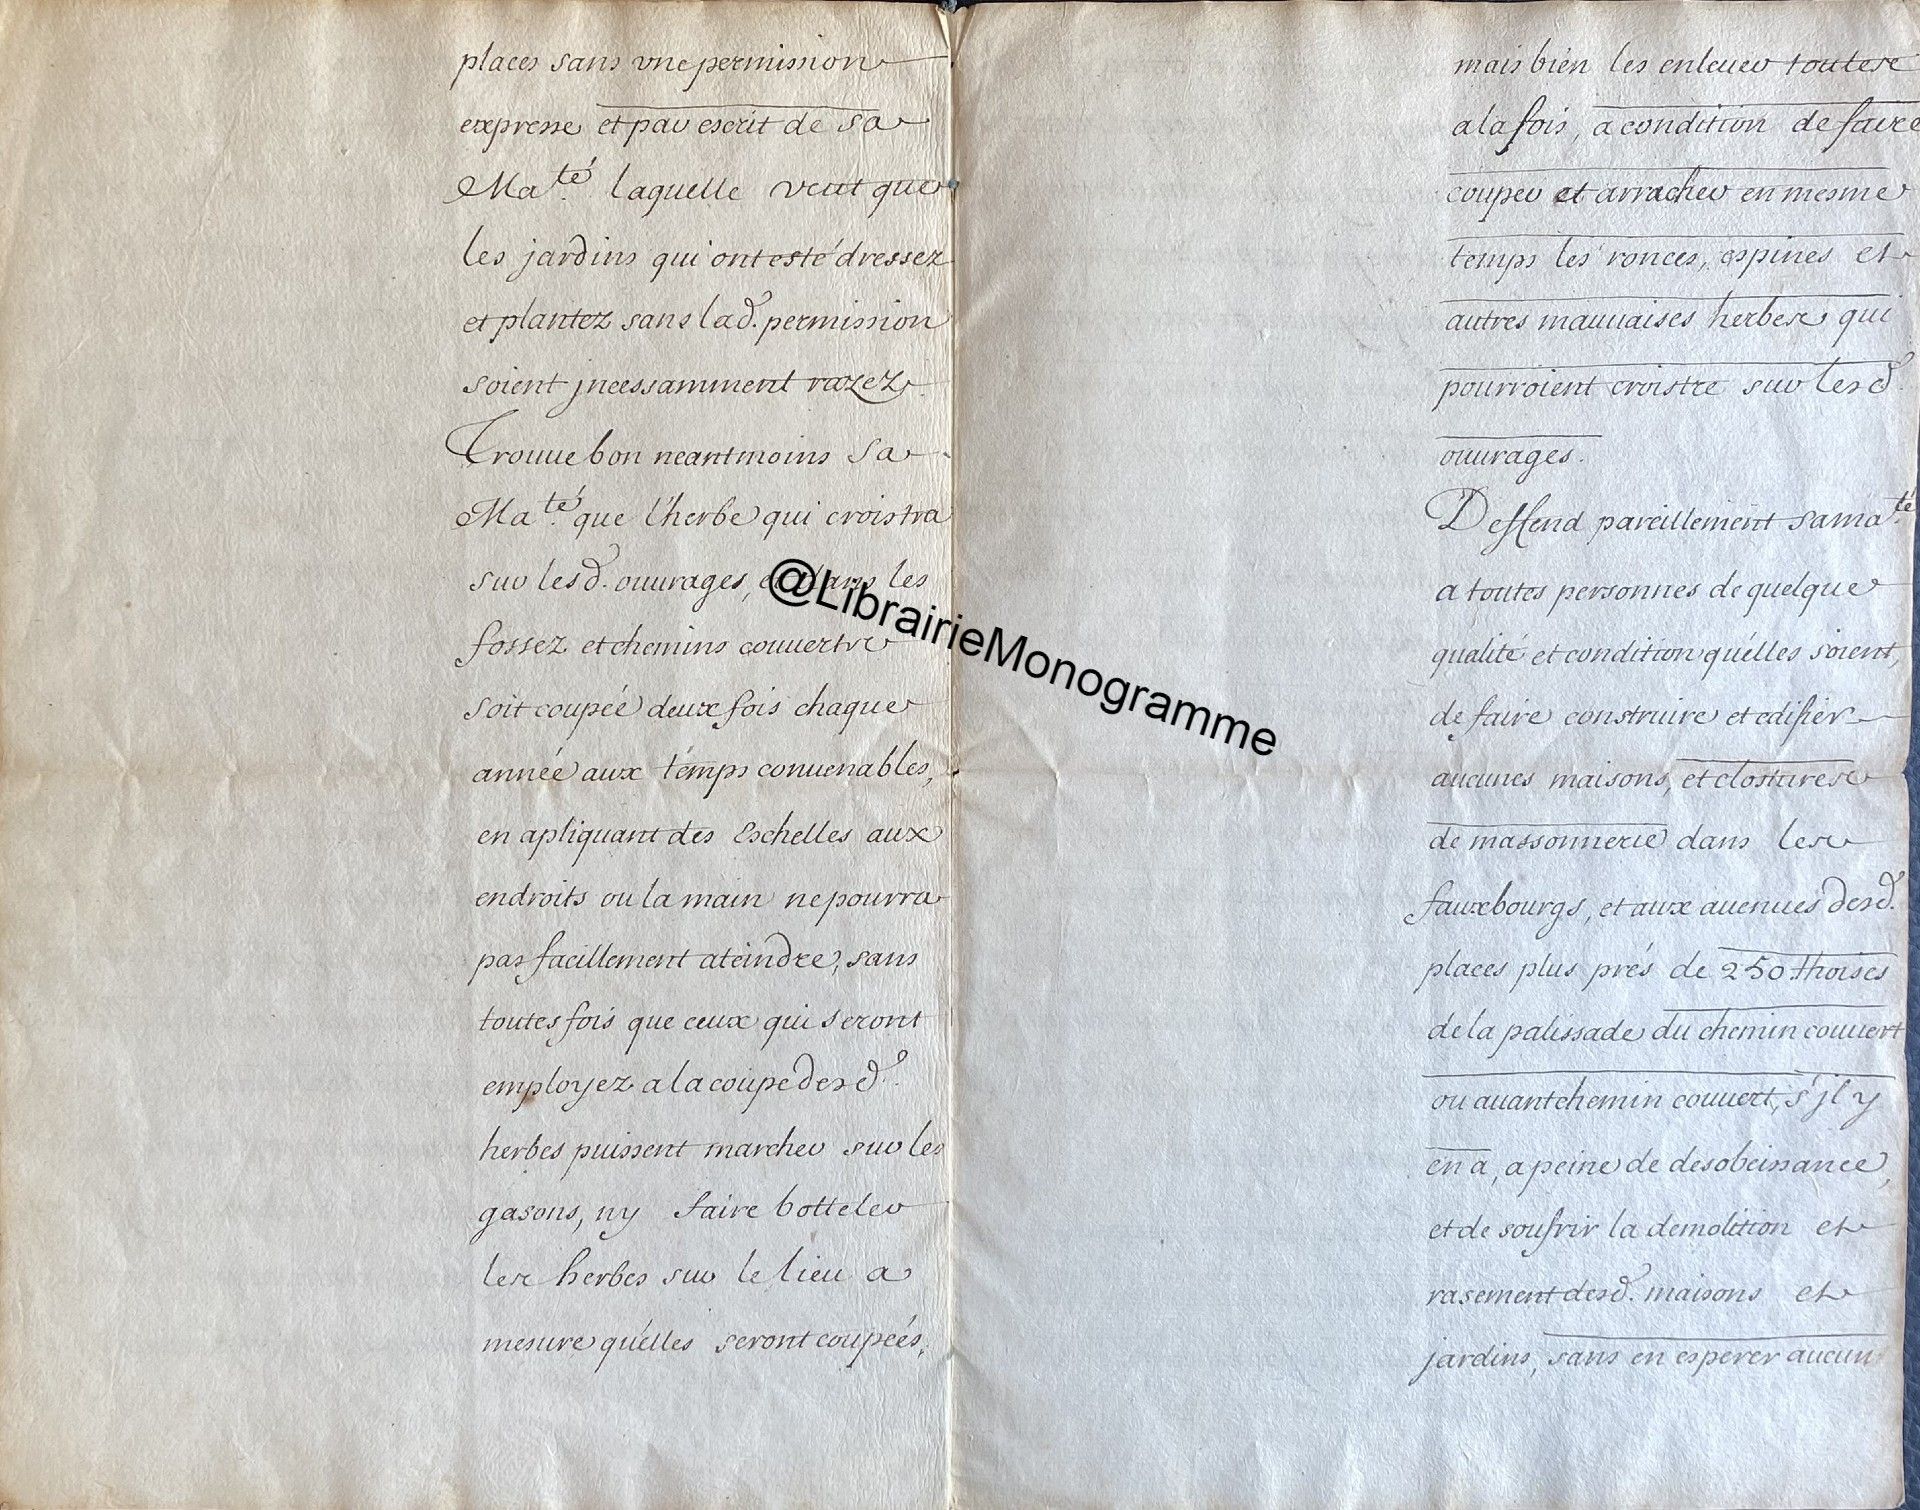 places sans vne permission
expresse et par escrit de Sa
Ma.té laquelle veut que
les jardins qui ont esté dressez
et plantez sans lad. permission
soient jncessamment razez
Trouue bon neantmoins Sa
Ma.té que l'herbe qui croistra
sur lesd. ouurages, et dans les
fossez et chemins couuerts
soit coupée deux fois chaque
année aux temps conuenables,
en apliquant des Eschelles aux
endroits ou la main ne pourra
pas facillement ateindre, sans
toutes fois que ceux qui seront
employez a la coupe desd.
herbes puissent marcher sur les
gasons, ny faire botteler
les herbes sur le lieu a
mesure qu'elles seront coupées,
mais bien les enleuer toutes
a la fois, a condition de faire
couper et arracher en mesme
temps les ronces, espines et
autres mauuaises herbes qui
pourroient croistre sur lesd.
ouurages.
Deffend pareillement sa ma.té
a toutes personnes de quelque
qualité et condition qu'elles soient,
de faire construire et edifier
aucunes maisons, et clostures
de massonnerie dans les
fauxbourgs, et aux auenues desd.
places plus prés de 250 thoises
de la palissade du chemin couuert
ou auantchemin couuert, s'jl y
en a, a peine de desobeissance,
et de soufrir la demolition et
rasement desd. maisons et
jardins, sans en esperer aucun
@LibrairieMonogramme